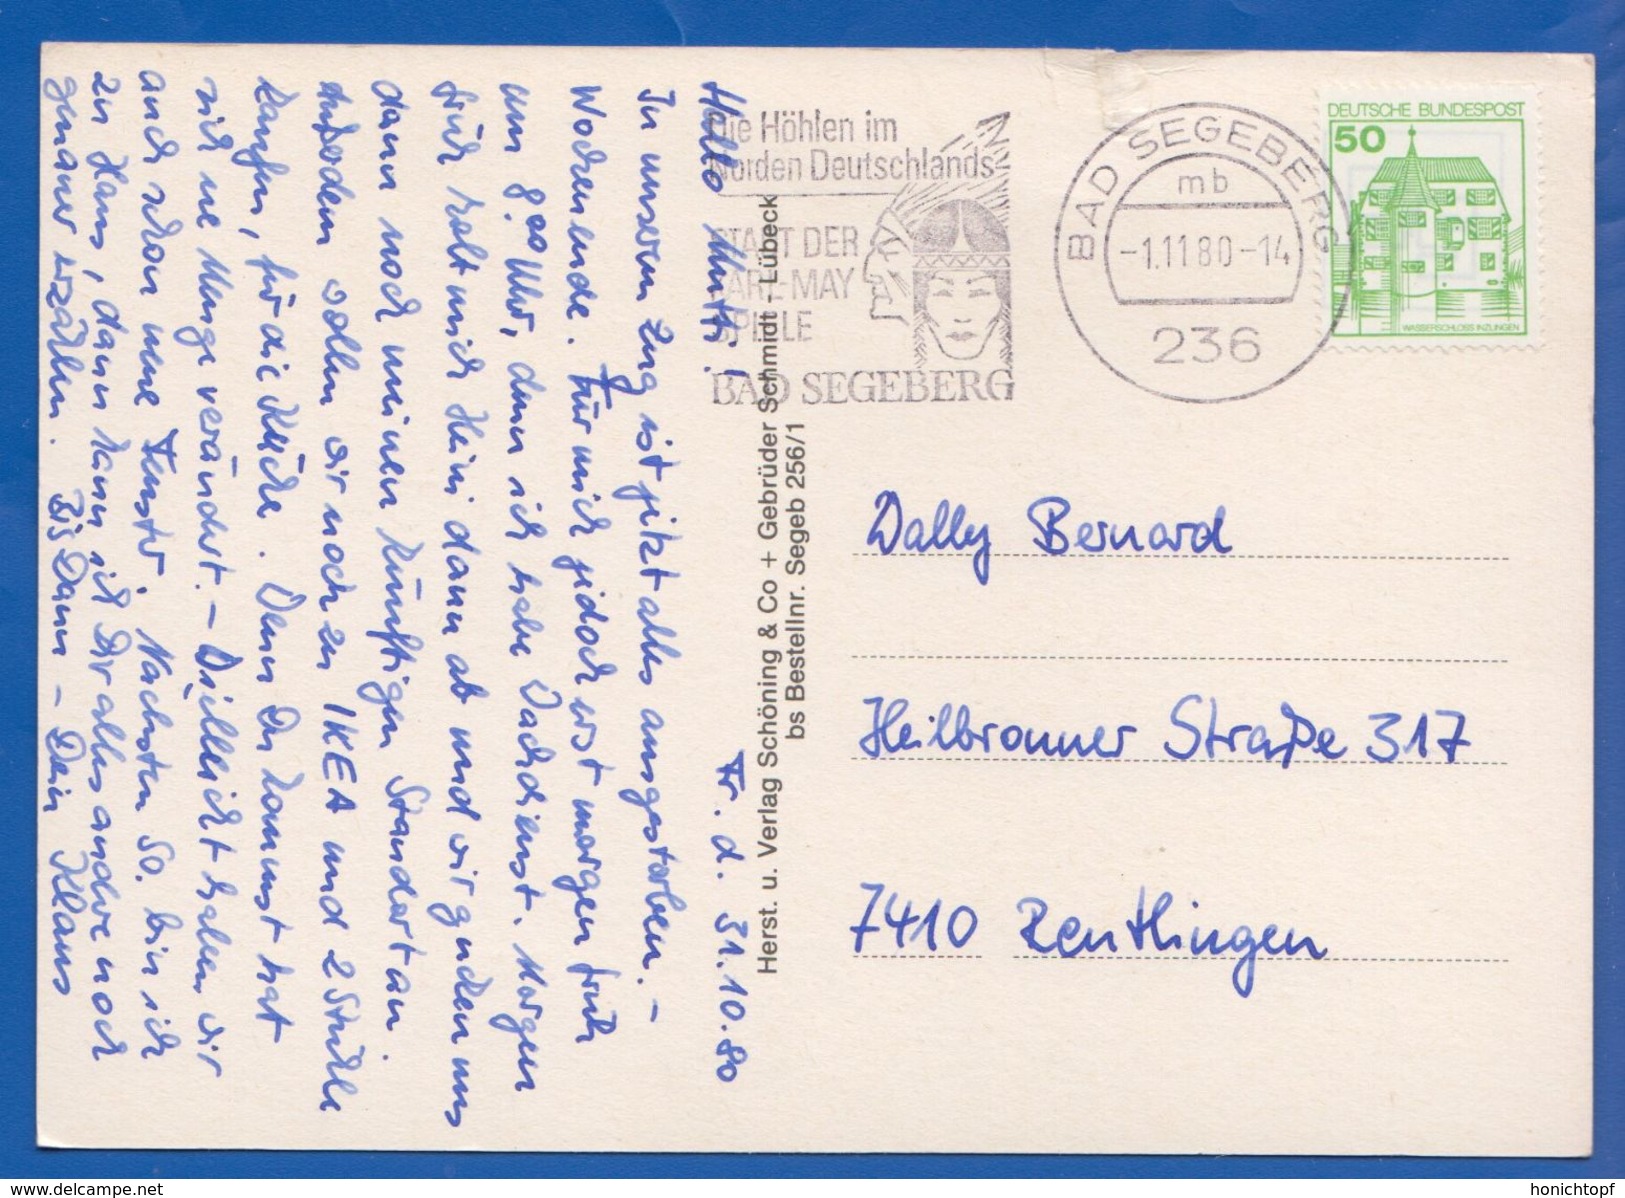 Die Höhlen im
Norden Deutschlands
STADT DER
KARL-MAY
SPIELE
BAD SEGEBERG
BAD SEGEBERG
mb
-1.11 80-14
236
DEUTSCHE BUNDESPOST
50
WASSERSCHLOSS INZLINGEN
Fr. d. 31.10.80
Hallo Mutti!
In unserm Zug ist jetzt alles ausgestorben. –
Wochenende. Für mich jedoch erst morgen früh
um 8.00 Uhr, denn ich habe Dachdienst. Morgen
früh holt mich Heini dann ab und wir gucken uns
dann noch meinen künftigen Standort an.
Außerdem wollen wir noch zu IKEA und 2 Stühle
kaufen, für die Küche. Denn Du kannst hat
sich ne Menge verändert. – Vielleicht haben wir
auch schon neue Fenster. Nächsten So. bin ich
zu Haus, dann kann ich Dir alles andere noch
genauer erzählen. Bis Dann – Dein Klaus
Herst. u. Verlag Schöning & Co + Gebrüder Schmidt - Lübeck
bs Bestellnr. Segeb 256/1
Dally Bernard
Heilbronner Straße 317
7410 Reutlingen
delcampe.net
honichtopf